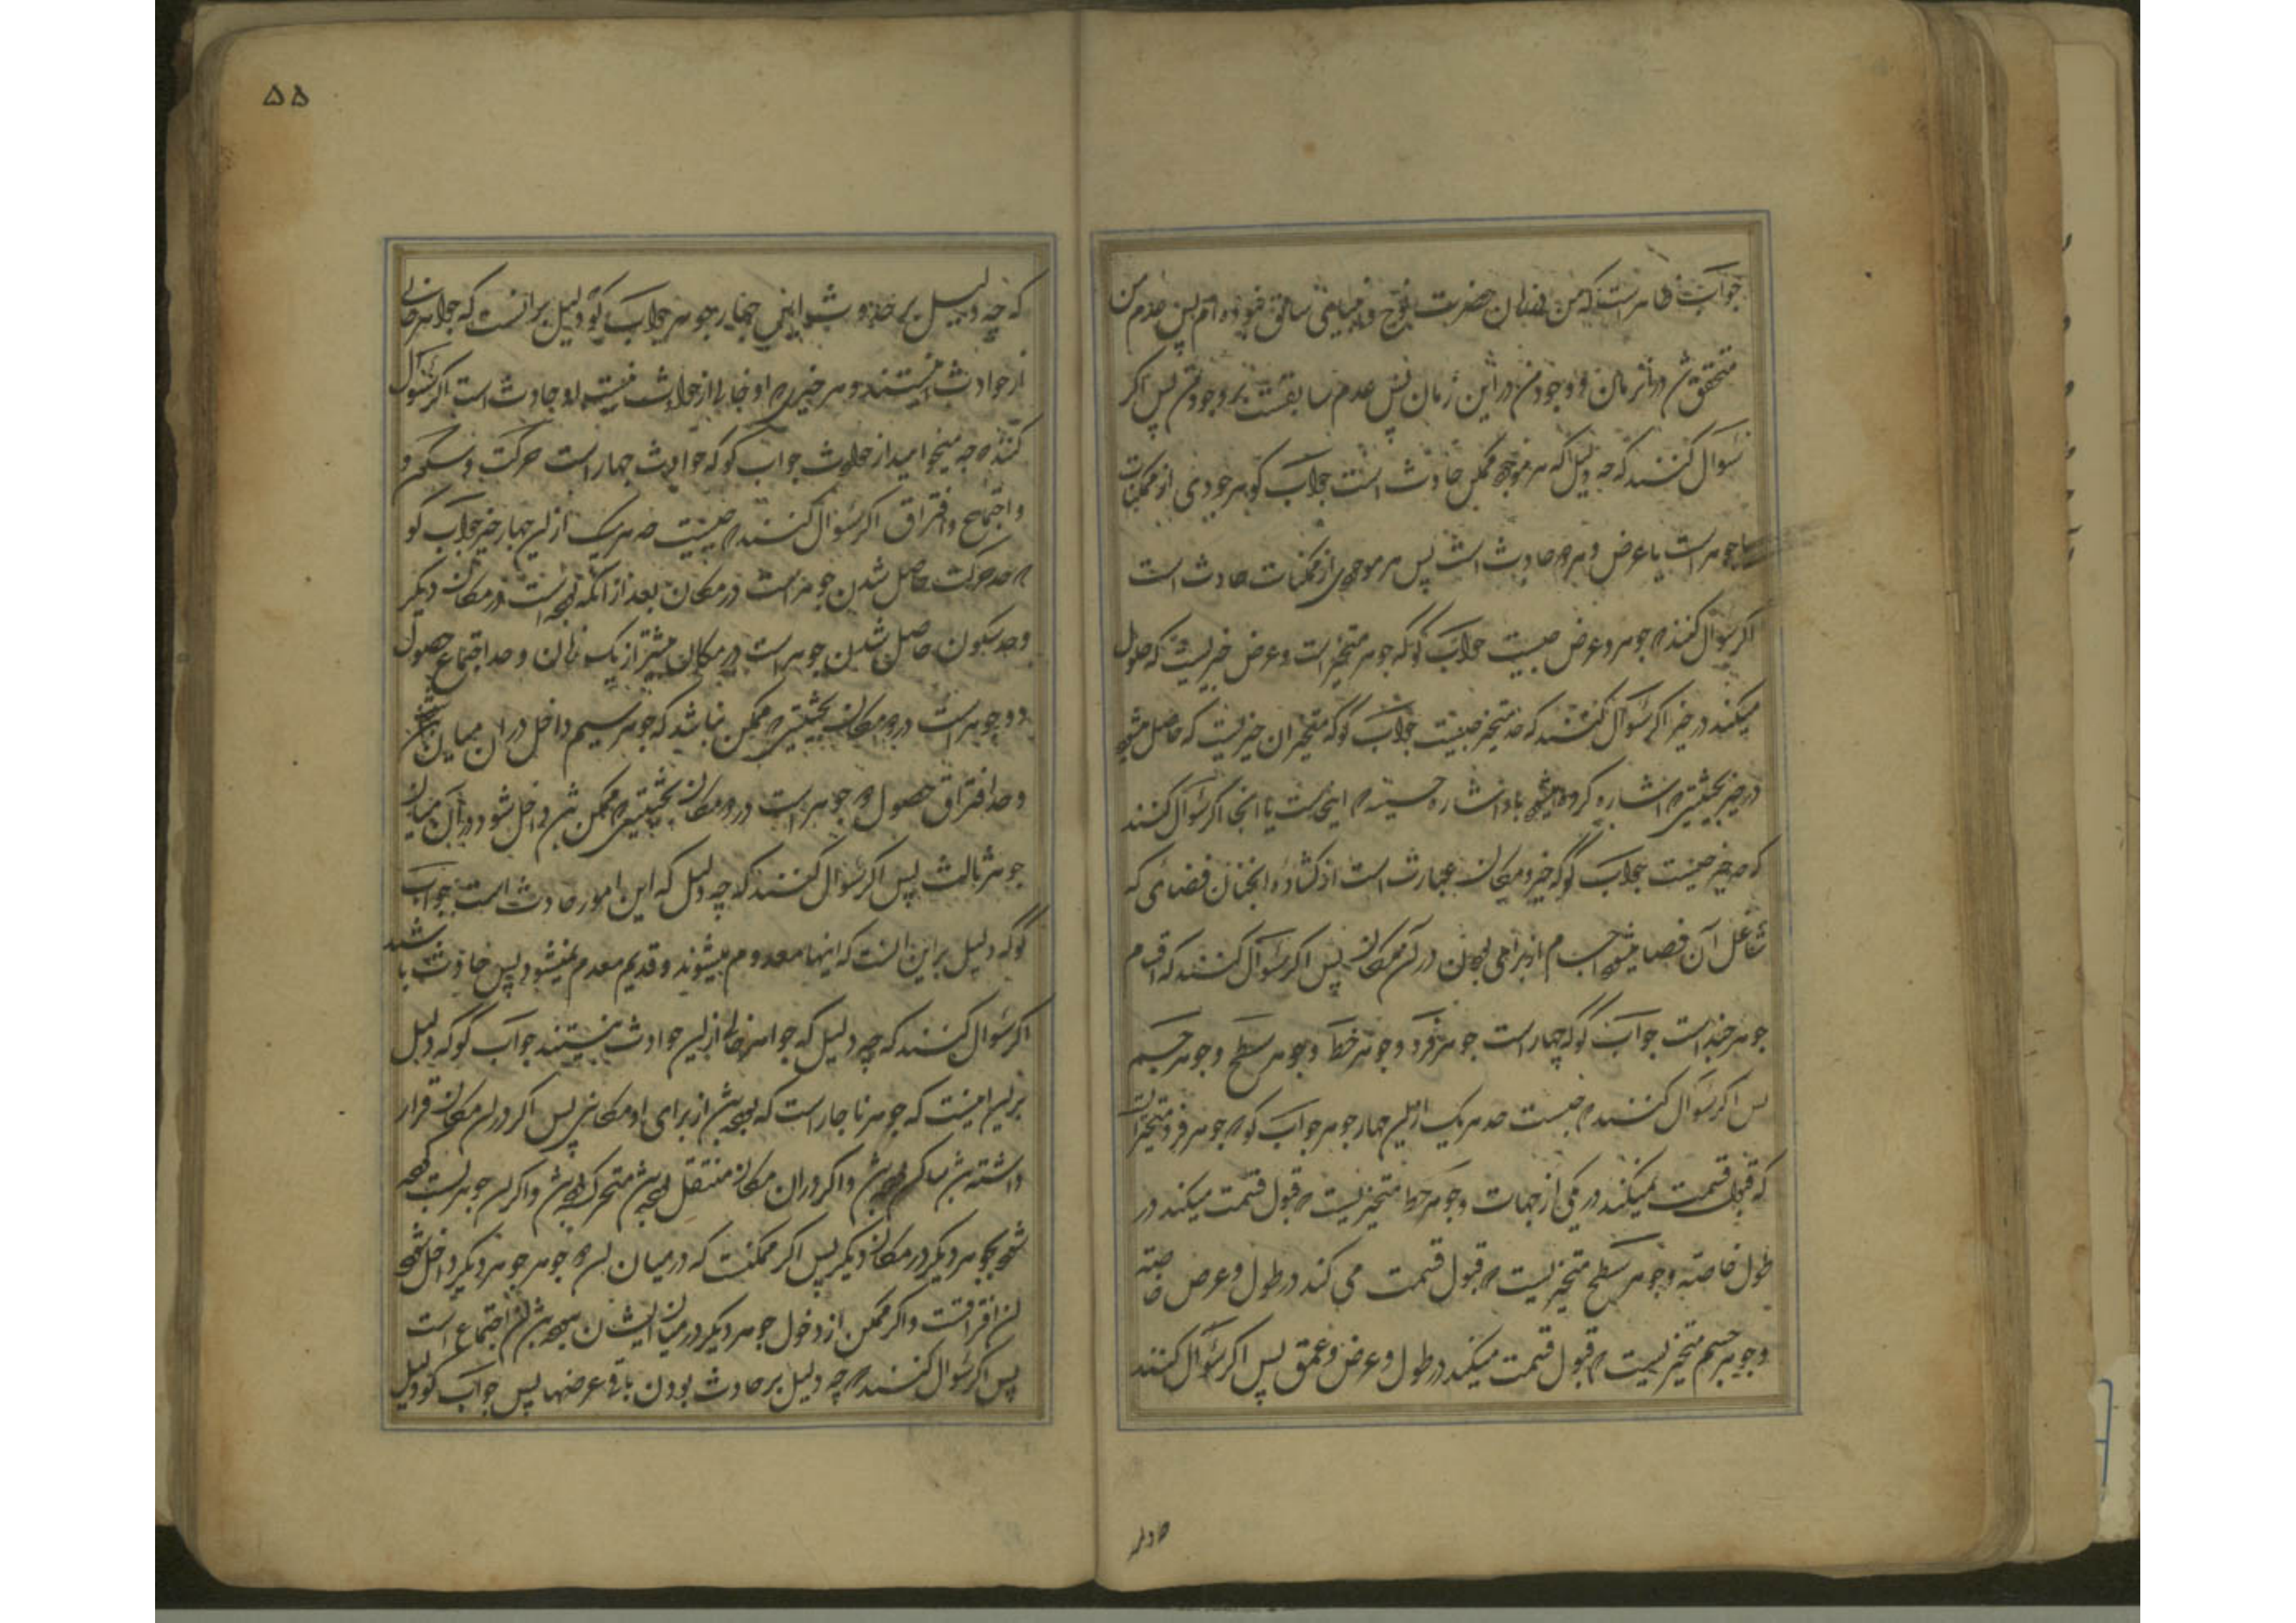 جواب ظاهر است که من در زمان حضرت نوح و زمانهای سابق نبوده ام پس عدم من
متحقق شد در آن زمان و وجود من در این زمان پس عدم سابقست بر وجود من پس اکر
سؤال کنند که چه دلیل که هر موجود ممکن حادث است جواب کو هر موجودی از ممکنات
یا جوهر است یا عرض و هر دو حادث است پس هر موجودی از ممکنات حادث است
اکر سؤال کنند که جوهر و عرض چیست جواب کو که جوهر متحیز است و عرض چیزیست که حلول
میکند در حیز اکر سؤال کنند که حد متحیز چیست جواب کو که متحیز ان چیزیست که حاصل میشود
در حیز بحیثیتی که اشاره کرده میشود باو اشاره حسیه که اینجاست یا انجا اکر سؤال کنند
که حد حیز چیست جواب کو که حیز و مکان عبارت است از کشاده انچنان فضائی که
شاغل آن فضا میشود اجسام از برای بودن در آن مکان پس اکر سؤال کنند که اقسام
جوهر چند است جواب کو که چهار است جوهر فرد و جوهر خط و جوهر سطح و جوهر جسم
پس اکر سؤال کنند که چیست حد هر یک از این چهار جوهر جواب کو که جوهر فرد متحیز است
که قبول قسمت نمیکند در یکی از جهات و جوهر خط متحیزیست که قبول قسمت میکند در
طول خاصّة و جوهر سطح متحیزیست که قبول قسمت می کند در طول و عرض خاصّة
و جوهر جسم متحیزیست که قبول قسمت میکند در طول و عرض و عمق پس اکر سؤال کنند
که چه دلیل
۵۵
که چه دلیل بر حدوث این چهار جوهر جواب کو دلیل بر انست که جواهر خالی
از حوادث نیستند و هر چیزی که او خالی از حوادث نیست او حادث است اکر سؤال
کنند که چه میخواهید از حوادث جواب کو که حوادث چهار است حرکت و سکون و
و اجتماع و افتراق اکر سؤال کنند که چیست حد هر یک از این چهار چیز جواب کو
که حد حرکت حاصل شدن جوهر است در مکان بعد از آنکه بوده است در مکان دیکر
و حد سکون حاصل شدن جوهر است در مکان بیشتر از یک زمان و حد اجتماع حصول
دو جوهر است در دو مکان بحیثیتی که ممکن نباشد که جوهر سیم داخل در ان میان
و حد افتراق حصول دو جوهر است در دو مکان بحیثیتی که ممکن باشد داخل شود در آن میان
جوهر ثالث پس اکر سؤال کنند که چه دلیل که این امور حادث است جواب
کو که دلیل بر این است که اینها معدوم میشوند و قدیم معدوم نمیشود پس حادث باشند
اکر سؤال کنند که چه دلیل که جواهر خالی از این حوادث نیستند جواب کو که دلیل
بر این اینست که جوهر ناچار است که بوده باشد از برای او مکان پس اکر در ان مکان قرار
داشته باشد ساکن بوده باشد و اکر در ان مکان منتقل بوده باشد متحرک بوده باشد و اکر این جوهر نسبت داده
شود بجوهر دیکر در مکان دیکر پس اکر ممکنست که در میان این دو جوهر جوهر دیکر داخل شود
این افتراقست و اکر ممکن از دخول جوهر دیکر در میان ایشان نبوده باشد این اجتماع است
پس اکر سؤال کنند که چه دلیل بر حادث بودن باقی عرضها پس جواب کو دلیل